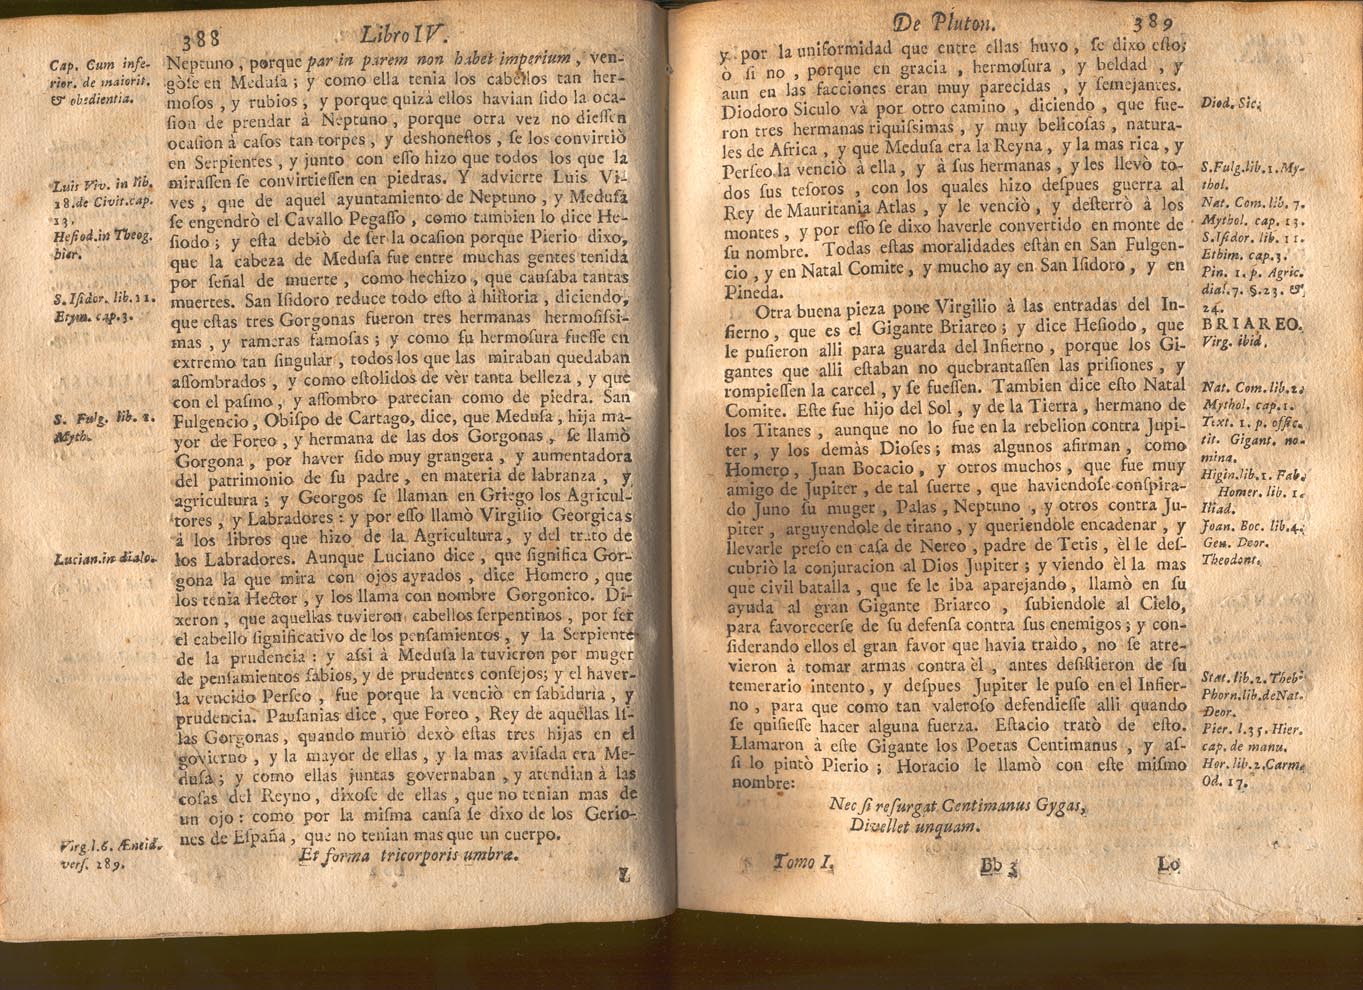 388 Libro IV.
Cap. Cum infe-
rior. de maiorit.
& obedientia.
Neptuno , porque par in parem non habet imperium , ven-
gòſe en Meduſa ; y como ella tenia los cabellos tan her-
moſos , y rubios , y porque quizà ellos havian ſido la oca-
ſion de prendar à Neptuno , porque otra vez no dieſſen
ocaſion à caſos tan torpes , y deshoneſtos , ſe los convirtiò
en Serpientes , y junto con eſſo hizo que todos los que la
miraſſen ſe convirtieſſen en piedras. Y advierte Luis Vi-
ves , que de aquel ayuntamiento de Neptuno , y Meduſa
ſe engendrò el Cavallo Pegaſſo , como tambien lo dice He-
ſiodo ; y eſta debiò de ſer la ocaſion porque Pierio dixo,
que la cabeza de Meduſa fue entre muchas gentes tenida
por ſeñal de muerte , como hechizo , que cauſaba tantas
muertes. San Iſidoro reduce todo eſto à hiſtoria , diciendo,
que eſtas tres Gorgonas fueron tres hermanas hermoſiſſi-
mas , y rameras famoſas ; y como ſu hermoſura fueſſe en
extremo tan singular , todos los que las miraban quedaban
aſſombrados , y como eſtolidos de vèr tanta belleza , y que
con el paſmo , y aſſombro parecian como de piedra. San
Fulgencio, Obiſpo de Cartago, dice, que Meduſa, hija ma-
yor de Foreo , y hermana de las dos Gorgonas , ſe llamò
Gorgona , por haver ſido muy grangera , y aumentadora
del patrimonio de ſu padre , en materia de labranza , y
agricultura ; y Georgos ſe llaman en Griego los Agricul-
tores , y Labradores : y por eſſo llamò Virgilio Georgicas
à los libros que hizo de la Agricultura , y del trato de
los Labradores. Aunque Luciano dice , que ſignifica Gor-
gona la que mira con ojos ayrados , dice Homero , que
los tenia Hector , y los llama con nombre Gorgonico. Di-
xeron , que aquellas tuvieron cabellos ſerpentinos , por ſer
el cabello ſignificativo de los penſamientos , y la Serpiente
de la prudencia : y aſſi à Meduſa la tuvieron por muger
de penſamientos ſabios, y de prudentes conſejos; y el haver-
la vencido Perſeo , fue porque la venciò en ſabiduria , y
prudencia. Pauſanias dice , que Foreo , Rey de aquellas Iſ-
las Gorgonas , quando muriò dexò eſtas tres hijas en el
govierno , y la mayor de ellas , y la mas aviſada era Me-
duſa ; y como ellas juntas governaban , y atendian à las
coſas del Reyno , dixoſe de ellas , que no tenian mas de
un ojo : como por la miſma cauſa ſe dixo de los Gerio-
nes de Eſpaña , que no tenian mas que un cuerpo.
Et forma tricorporis umbræ.
Luis Viv. in lib.
18.de Civit.cap.
13.
Heſiod.in Theog.
S. Iſidor. lib. 11.
Etym. cap.3.
S. Fulg. lib. 1.
Myth.
Lucian.in dialo.
Virg.l.6. Æneid.
verſ. 289.
De Pluton. 389
y por la uniformidad que entre ellas huvo , ſe dixo eſto;
ò ſi no , porque en gracia , hermoſura , y beldad , y
aun en las facciones eran muy parecidas , y ſemejantes.
Diodoro Siculo và por otro camino , diciendo , que fue-
ron tres hermanas riquiſsimas , y muy belicoſas , natura-
les de Africa , y que Meduſa era la Reyna , y la mas rica , y
Perſeo la venciò à ella , y à ſus hermanas , y les llevò to-
dos ſus teſoros , con los quales hizo deſpues guerra al
Rey de Mauritania Atlas , y le venciò , y deſterrò à los
montes , y por eſſo ſe dixo haverle convertido en monte de
ſu nombre. Todas eſtas moralidades eſtàn en San Fulgen-
cio , y en Natal Comite , y mucho ay en San Iſidoro , y en
Pineda.
Otra buena pieza pone Virgilio à las entradas del In-
fierno , que es el Gigante Briareo ; y dice Heſiodo , que
le puſieron alli para guarda del Infierno , porque los Gi-
gantes que alli eſtaban no quebrantaſſen las priſiones , y
rompieſſen la carcel , y ſe fueſſen. Tambien dice eſto Natal
Comite. Eſte fue hijo del Sol , y de la Tierra , hermano de
los Titanes , aunque no lo fue en la rebelion contra Jupi-
ter , y los demàs Dioſes ; mas algunos afirman , como
Homero , Juan Bocacio , y otros muchos , que fue muy
amigo de Jupiter , de tal ſuerte , que haviendoſe conſpira-
do Juno ſu muger , Palas , Neptuno , y otros contra Ju-
piter , arguyendole de tirano , y queriendole encadenar , y
llevarle preſo en caſa de Nereo , padre de Tetis , èl le deſ-
cubriò la conjuracion al Dios Jupiter ; y viendo èl la mas
que civil batalla , que ſe le iba aparejando , llamò en ſu
ayuda al gran Gigante Briareo , ſubiendole al Cielo,
para favorecerſe de ſu defenſa contra ſus enemigos ; y con-
ſiderando ellos el gran favor que havia traìdo , no ſe atre-
vieron à tomar armas contra èl , antes deſiſtieron de ſu
temerario intento , y deſpues Jupiter le puſo en el Infier-
no , para que como tan valeroſo defendieſſe alli quando
ſe quiſieſſe hacer alguna fuerza. Eſtacio tratò de eſto.
Llamaron à eſte Gigante los Poetas Centimanus , y aſ-
ſi lo pintò Pierio ; Horacio le llamò con eſte miſmo
nombre:
Nec ſi reſurgat Centimanus Gygas,
Divellet unquam.
Tomo I. Bb 3 Lo
Diod. Sic.
S.Fulg.lib.1.My-
thol.
Nat. Com. lib. 7.
Mythol. cap. 13.
S.Iſidor. lib. 11.
Ethim. cap.3.
Pin. 1. p. Agric.
dial.7. §.23. &
24.
BRIAREO.
Virg. ibid.
Nat. Com.lib.2.
Mythol. cap.1.
Text. 1. p. offic.
tit. Gigant. no-
mina.
Higin.lib.1. Fab.
Homer. lib. 1.
Iliad.
Joan. Boc. lib.4.
Gen. Deor.
Theodont.
Stat. lib. 2. Theb.
Phorn.lib.deNat.
Deor.
Pier. l.35. Hier.
cap. de manu.
Hor. lib.2.Carm.
Od. 17.